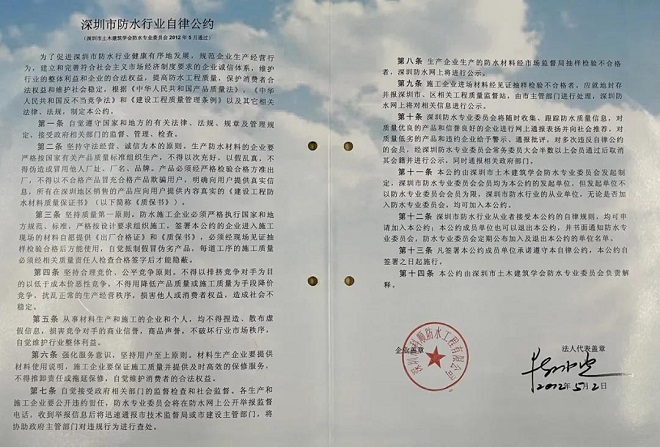 深圳市防水行业自律公约
（深圳市土木建筑学会防水专业委员会 2012 年 5 月通过）
为了促进深圳市防水行业健康有序地发展，规范企业生产经营行
为，建立和完善符合社会主义市场经济制度要求的企业诚信体系，维护
行业的整体利益和企业的合法权益，提高防水工程质量，保护消费者合
法权益和维护社会稳定，根据《中华人民共和国产品质量法》，《中华
人民共和国反不当竞争法》和《建设工程质量管理条例》以及其它相关
法律、法规，制定本公约。
第一条 自觉遵守国家和地方的有关法律、法规、规章及管理规
定，接受政府相关部门的监督、管理、检查。
第二条 坚持守法经营、诚信为本的原则。生产防水材料的企业要
严格按国家有关产品质量标准组织生产，不得以次充好，以假乱真，不
得伪造或冒用他人厂址、厂名、品牌。产品必须经严格检验合格方准出
厂，不得以不合格产品冒充合格产品欺骗用户。明确向用户提供真实信
息，所有在深圳地区销售的产品应向用户提供内容真实的《建设工程防
水材料质量保证书》（以下简称《质保书》）。
第三条 坚持质量第一原则。防水施工企业必须严格执行国家和地
方规范、标准，严格按设计要求组织施工。签署本公约的企业进入施工
现场的材料自愿提供《出厂合格证》和《质保书》，必须经现场见证抽
样检验合格后方能使用。自觉抵制假冒伪劣产品。每道工序的施工质量
必须经相关质量责任人检查合格签字后才能隐蔽。
第四条 坚持合理竞价、公平竞争原则。不得以排挤竞争对手为目
的以低于成本价恶性竞争，不得用降低产品质量或施工质量为手段降价
竞争，扰乱正常的生产经营秩序，损害他人或消费者权益，造成社会不
稳定。
第五条 从事材料生产和施工的企业和个人，均不得捏造、散布虚
假信息，损害竞争对手的商业信誉、商品声誉，不破坏行业市场秩序，
自觉维护行业整体利益。
第六条 强化服务意识，坚持用户至上原则。材料生产企业要提供
材料使用说明，施工企业要保证施工质量并提供及时高效的保修服务，
不得推卸责任或拖延保修，自觉维护消费者的合法权益。
第七条 自觉接受政府相关部门的监督检查和社会监督。各生产和
施工企业要公开违约责任，防水专业委员会将在防水网上公开举报监督
电话，收到举报信息后将迅速通报市技术监督局或市建设主管部门，将
协助政府主管部门对违规行为进行查处。
第八条 生产企业生产的防水材料经市场监督局抽样检验不合格
者，深圳防水网上将进行公示。
第九条 施工企业进场材料经见证抽样检验不合格者，应就地封存
并报深圳市、区相关工程质量监督站，由市主管部门进行处理，深圳防
水网上将对相关信息进行公示。
第十条 深圳市防水专业委员会将随时收集、跟踪防水质量信息，对
质量优良的产品和信誉良好的企业进行网上通报表扬并向社会推荐，对
质量低劣的产品和违约企业给予警示、通报批评。对多次违反自律公约
的会员，经深圳市防水专业委员会常务委员大会半数以上会员通过后取消
其会籍并进行公示，同时通报相关政府部门。
第十一条 本公约由深圳市土木建筑学会防水专业委员会发起制
定，深圳市防水专业委员会会员均为本公约的发起单位，但发起单位不
以防水专业委员会会员为限，深圳市防水行业的从业单位，无论是否加
入防水专业委员会，均可加入本公约。
第十二条 深圳市防水行业从业者接受本公约的自律规则，均可申
请加入本公约；本公约成员单位也可以退出本公约，并书面通知防水专
业委员会，防水专业委员会定期公布加入及退出本公约的单位名单。
第十三条 凡签署本公约成员单位承诺遵守本自律公约，本公约自
签署之日起施行。
第十四条 本公约由深圳市土木建筑学会防水专业委员会负责解
释。
企业盖章
法人代表盖章
2012年5月2日